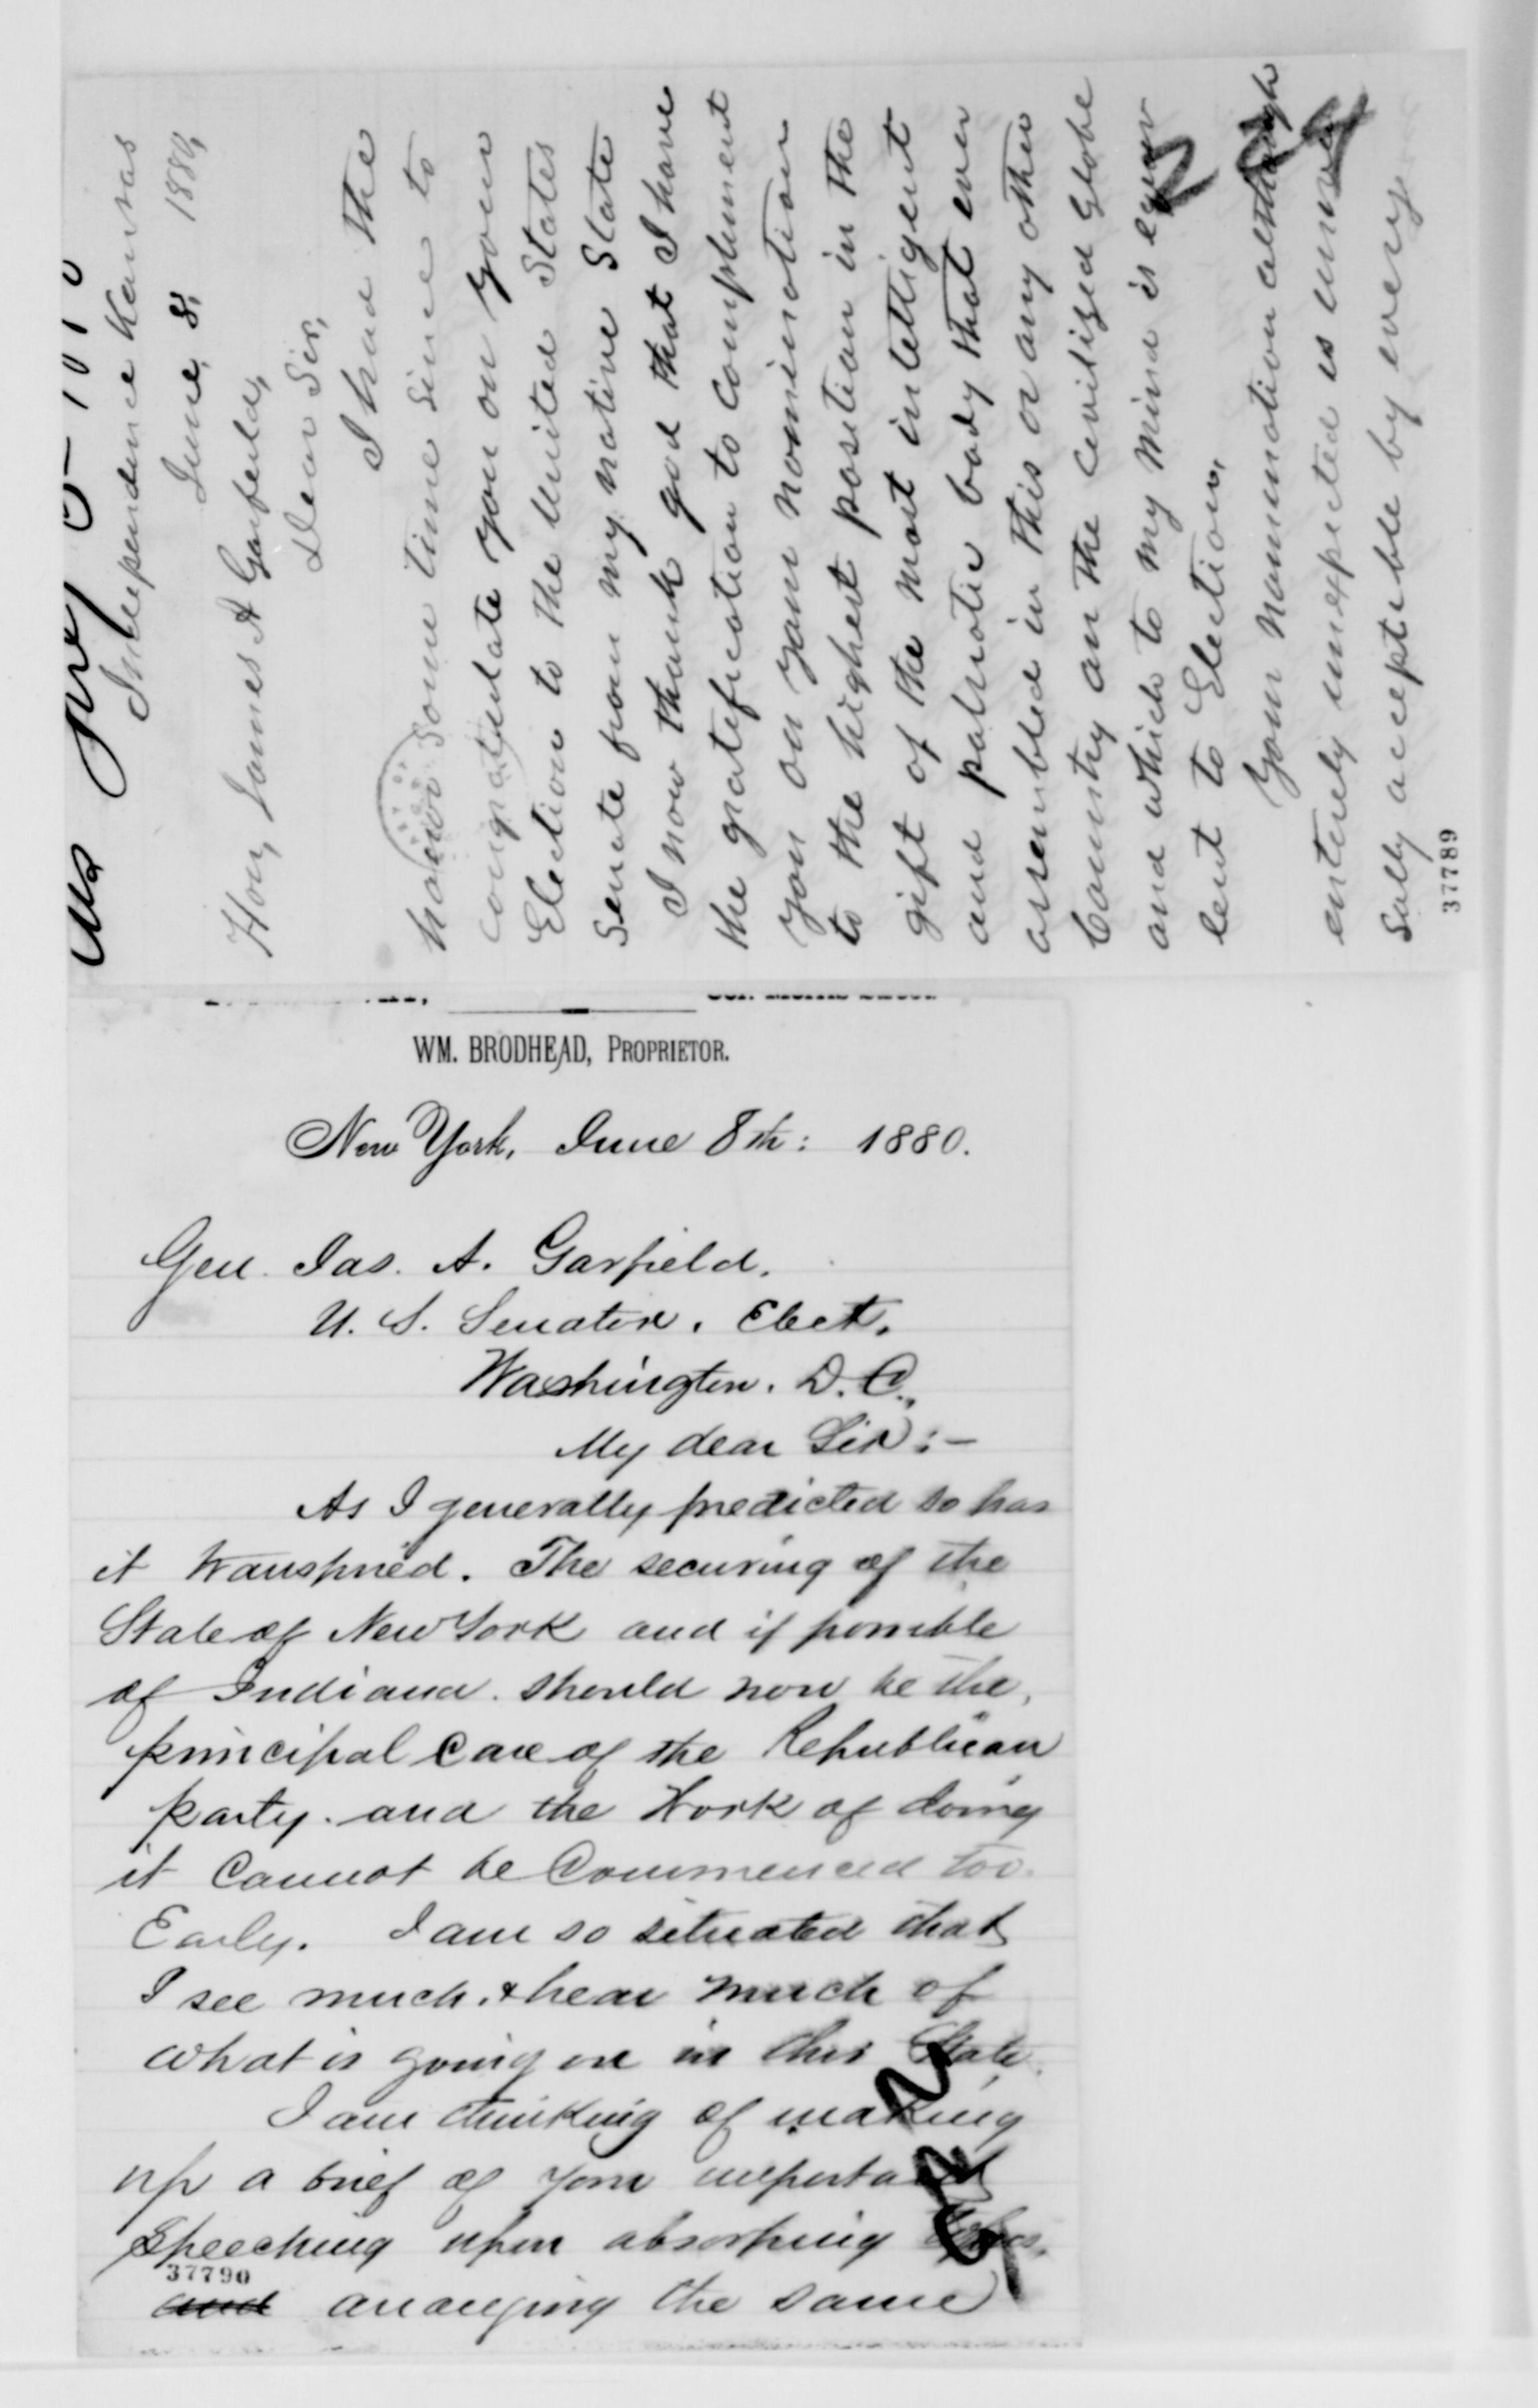 Independence Kansas
June 8, 1880,
Hon, James A Garfield,
Dear Sir,
I had the
honor some time since to
congratulate you on your
Election to the United States
Senate from my native State
I now thank god that I have
the gratification to complement
you on your nomination
to the highest position in the
gift of the most intelligent
and patriotic body that ever
assembled in this or any other
Country on the Civilized Globe
and which to my mind is equiv
lent to Election,
Your nomination although
entirely unexpected is univer
sally acceptible by every
37789
WM. BRODHEAD, PROPRIETOR.
New York, June 8th: 1880.
Gen. Jas. A. Garfield.
U. S. Senator. Elect.
Washington. D.C.,
My dear Sir:—
As I generally predicted so has
it transpired. The securing of the
State of New York and if possible
of Indiana. should now be the,
principal care of the Republican
party. and the Work of doing
it Cannot be Commenced too.
Early. I am so situated that
I see much. & hear much of
what is going on in this State.
I am thinking of making
up a brief of your important
Speeching upon absorbing
37790
and arranging the same